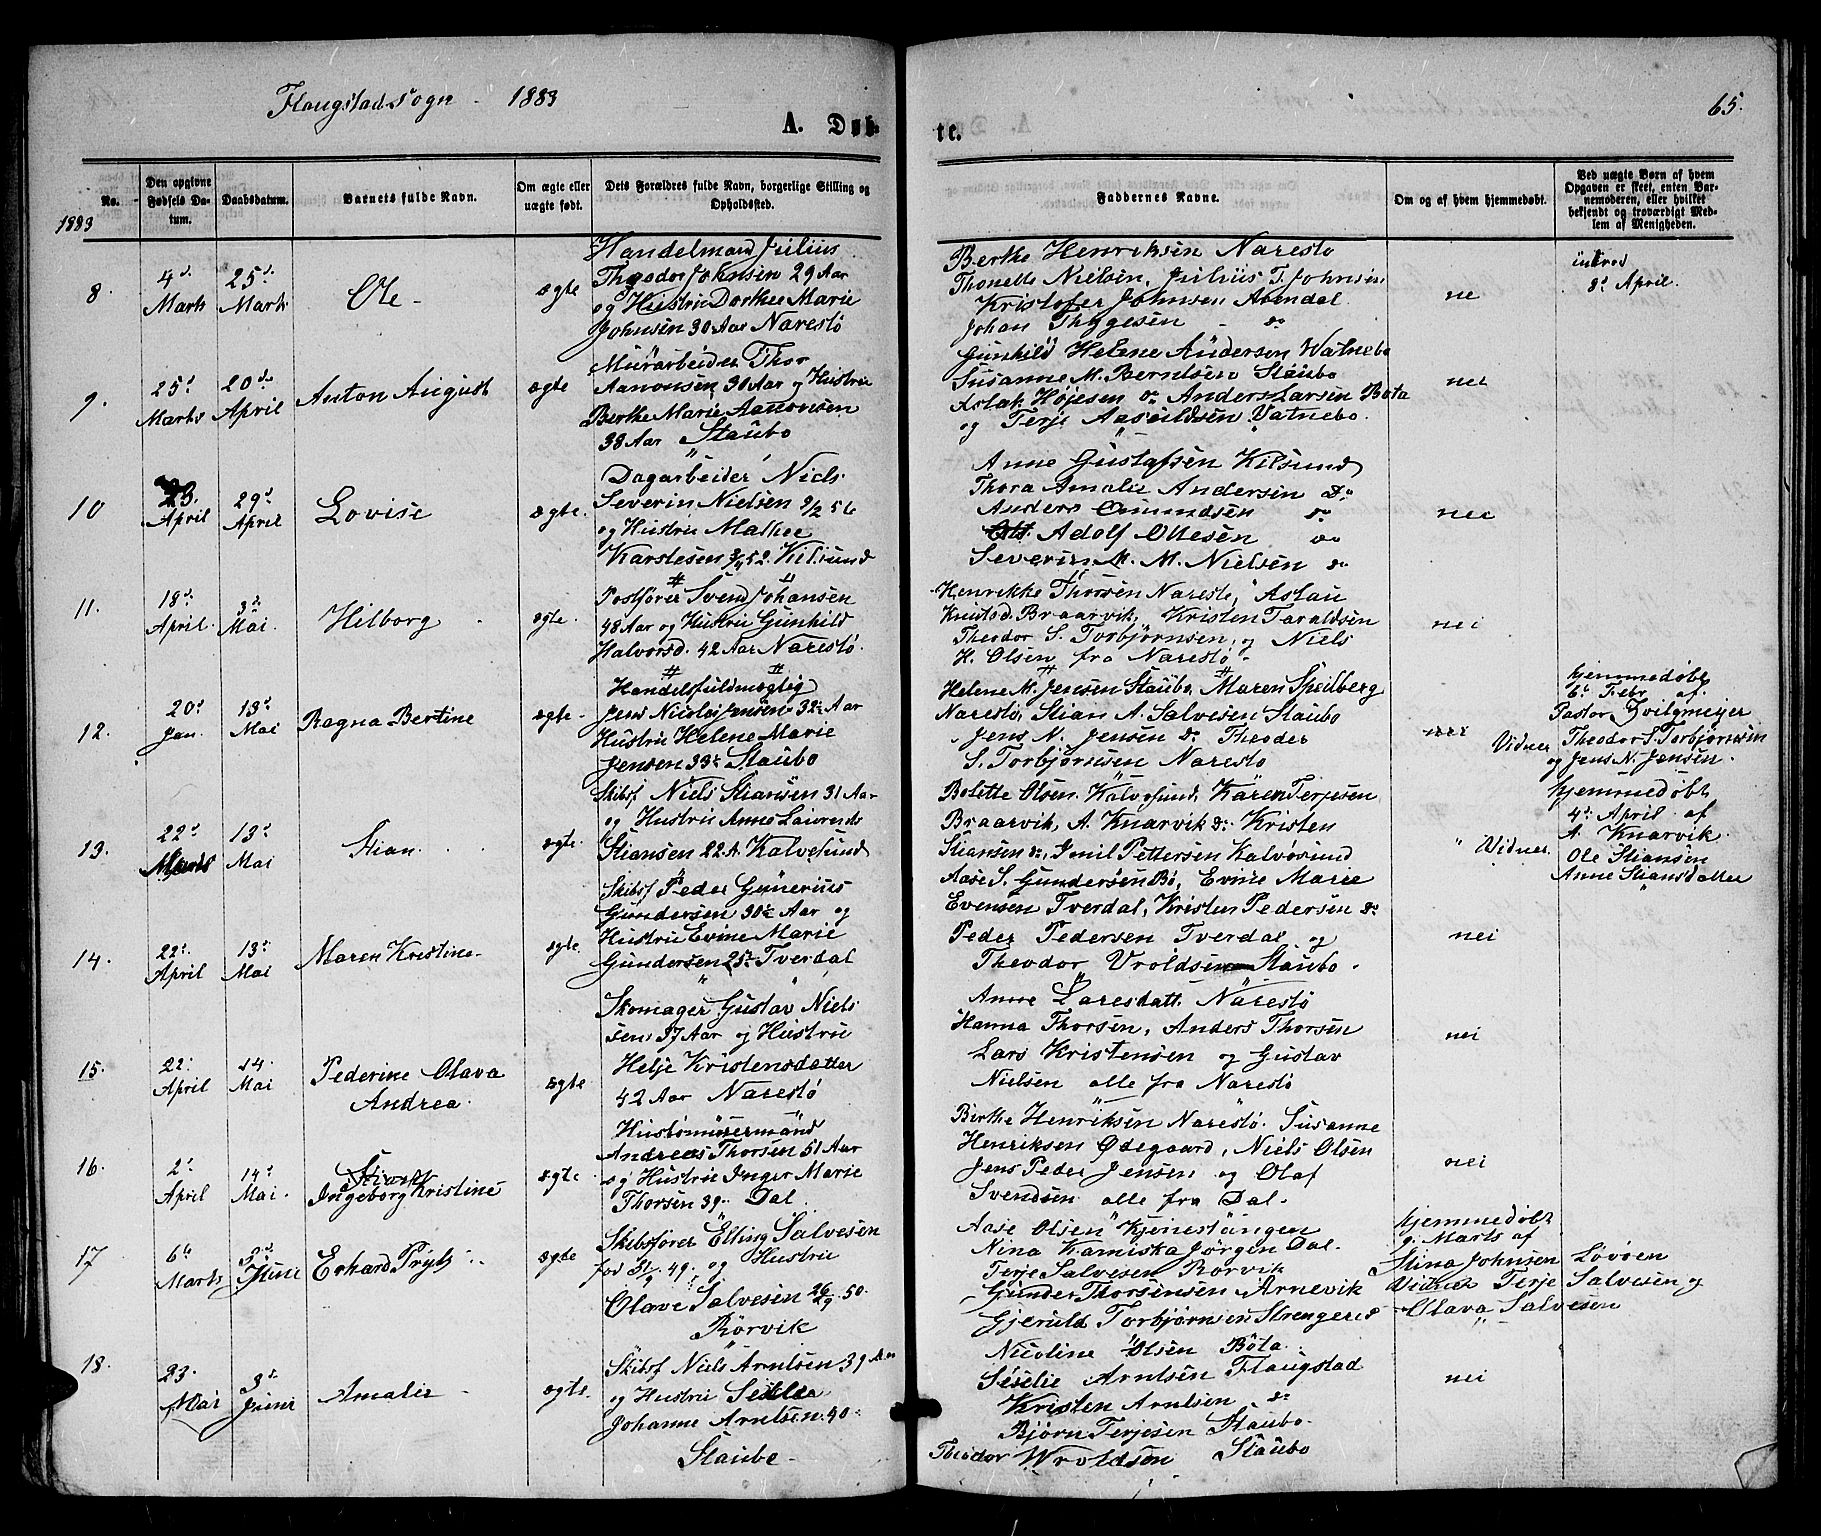 Flangstad sogn - 1883
65.
A. Døb-
te.
No.
Den opgivne Fødsels Da-tum.
Daabsdatum.
Barnets fulde Navn.
Om ægte eller uægte født.
Dets Forældres fulde Navn, borgerlige Stilling og Opholdssted.
Faddernes Navne.
Om og af hvem hjemmedøbt.
Ved uægte Børn af hvem Opgaven er skeet, enten Bar-nemoderen, eller hvilket bekjendt og troværdigt Med-lem af Menigheden.
1883
8.
4d. Marts
25d. Marts
Ole -
ægte
Handelmand Julius
Thodor Johnsen 29 Aar
og Hustru Dorthee Marie
Johnsen 30 Aar Narestö
Berthe Henriksen Naresto
Thonette Nielsen, Julius T. Johnsen
Kristofer Johnsen Arendal
Johan Thygesen - do
ne
introd
8d April.
9.
25d Marts
20de April
Anton August
ægte
Murarbeider Thor
Aanonsen 30 Aar og Hustru
Berthe Marie Aanonsen
38 Aar Staubo
Gunhild Helene Anderson Watnebo
Susanne M. Berntsen Staubo
Aslak Højesen do Anders Larsen Bota
og Terje Aasuldsen Vatnebo.
nei
10
23. April
29d April
Lovise
ægte.
Dagarbeider Niels
Severin Nielsen 9/2 56
og Hustru Mathee
Karstesen 3/4 52. Kilsund
Anne Gustafsen Kilsund
Thora Amalie Andersen do
Anders Omundsen do
Adolf Ottesen do
Severin M. M. Nielsen do
nei
11.
18d. April.
3d. Mai
Hilborg
ægte.
Postfører Svend Johansen
48 Aar og Hustru Gunhild
Halvorsd. 42 Aar Narestö.
Henrikke Thorsen Naresto, Aslau
Knutsd. Braarvik, Kristen Taraldsen
Theodor S. Torbjørnsen, og Niels
K. Olsen fra Narestö -
nei
12.
20d Jan.
13d Mai
Ragna Bertine
ægte -
Handelsfuldmægtig
Jens Nicolai Jensen 32 Aar
Hustru Helene Marie
Jensen 33 Staubo
Helene M. Jensen Staubo, Maren Speilberg
Narestö, Stian A. Salvesen Staubo
Jens N. Jensen do Theodor
S. Torbjørnsen Naresto
hjemmedøbt
6d Febr af
Pastor Zvilgmeyer
Vidner Theodor S. Torbjørnsen
og Jens N. Jensen.
13.
22d Marts
13d. Mai
Stian.
ægte.
Skibsf Niels Stiansen 31 Aar
og Hustru Anne Laurends
Stiansen 22 A. Kalvesund
Bolette Olsen Kalvøsund, Karen Terjesen
Braarvik, A. Knarvik do Kristen
Stiansen do, Emil Pettersen Kalvøsund
hjemmedøbt
4d. April af
A. Knarvik.
" Vidner Ole Stiansen
Anne Stiansdatter
14.
22d. April
13d. Mai
Maren Kristine
ægte
Skibsf Peder Gunerius
Gundersen 30 Aar og
Hustru Evine Marie
Gundersen 25 Tverdal
Aase S. Gundersen Bø, Evine Marie
Evensen Tverdal, Kristen Pedersen do
Peder Pedersen Tverdal og
Theodor Vroldsen Staubo.
nei
15.
22d April
14. Mai
Pederine Olava
Andrea.
ægte
Skomager Gustav Niels
sen 37 Aar og Hustru
Helje Kristensdatter
42 Aar Narestö
Anne Laresdatt. Narestö
Hanna Thorsen, Anders Thorsen
Lars Kristensen og Gustav
Nielsen alle fra Narestö
nei
16.
2d April
14d Mai.
Ingeborg Kristine
ægte
Andreas Thorsen 51 Aar
og Hustru Inger Marie
Thorsen 39. Dal.
Berthe Henriksen Narestö. Susanne
Henriksen Ødegaard, Niels Olsen
Jens Peder Jensen og Olaf
Svendsen alle fra Dal.
nei
17
6te Marts
3d Juni
Erhard Prytz
ægte
Skibsfører Elling Salvesen
fød 31/9 49. og Hustru
Olave Salvesen 26/29 50.
Rörvik
Aase Olsen Kjenestangen
Nina Kamiska Jørgen Dal.
Terje Salvesen Rorvik
Gunder Thorsensen Arnevik
Gjeruld Torbjørnsen Strengered
hjemmedøbt
9. Marts af
Stina Johnsen Lövöen
Vidner Terje Salvesen og
Olava Salvesen
18.
23. Mai
3d. Juni
Amalie -
ægte.
Skibsf Niels Arntsen 39 Aar
og Hustru
Johanne Arntsen 40
Staubo -
Nicoline Olsen Bota.
Siselie Arntsen Flangstad
Kristen Arntsen do
Bjørn Terjesen Staubo.
Theodor Wroldsen Staubo
nei